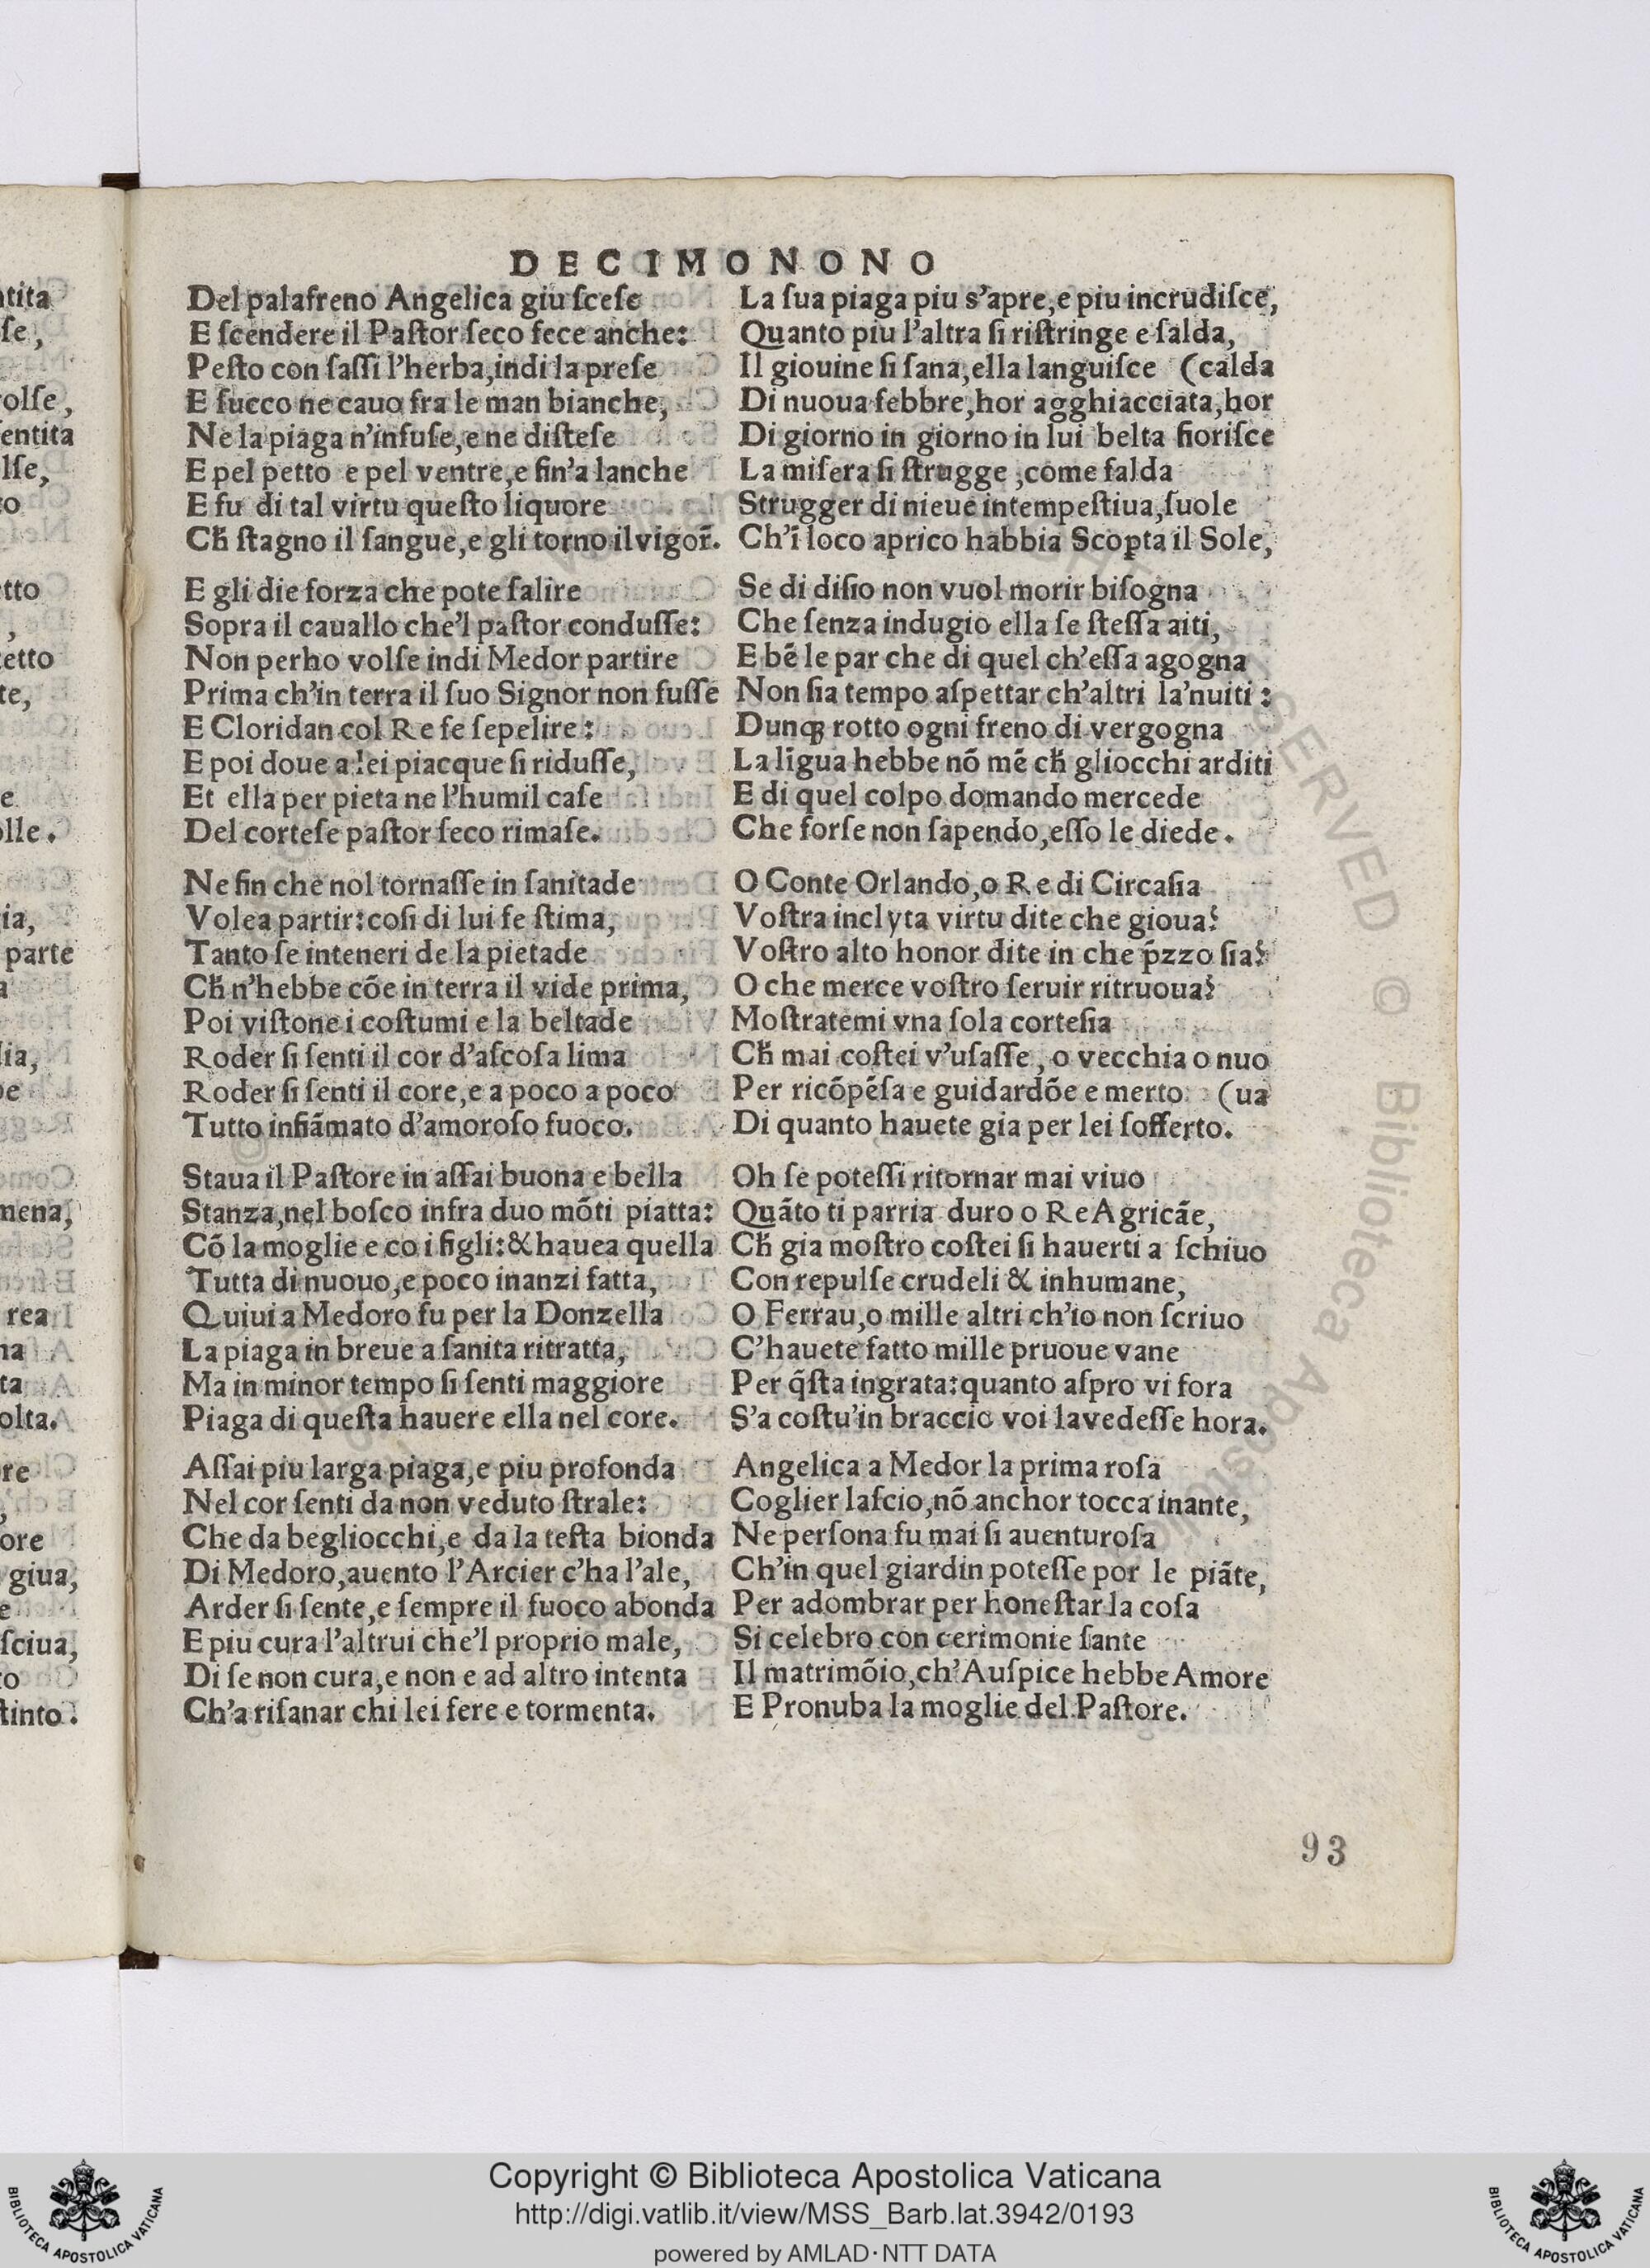 DECIMONONO
Del palafreno Angelica giu ſceſe
E ſcendere il Paſtor ſeco fece anche:
Peſto con ſaſſi l'herba,indi la preſe
E ſucco ne cauo fra le man bianche,
Ne la piaga n'infuſe,e ne diſteſe
E pel petto e pel ventre,e fin'a lanche
E fu di tal virtu queſto liquore
Ch̃ ſtagno il ſangue,e gli torno il vigor̃.
E gli die forza che pote ſalire
Sopra il cauallo che'l paſtor conduſſe:
Non perho volſe indi Medor partire
Prima ch'in terra il ſuo Signor non fuſſe
E Cloridan col Re fe ſepelire:
E poi doue a lei piacque ſi riduſſe,
Et ella per pieta ne l'humil caſe
Del corteſe paſtor ſeco rimaſe.
Ne fin che nol tornaſſe in ſanitade
Volea partir:coſi di lui fe ſtima,
Tanto ſe inteneri de la pietade
Ch̃ n'hebbe cõe in terra il vide prima,
Poi viſtone i coſtumi e la beltade
Roder ſi ſenti il cor d'aſcoſa lima
Roder ſi ſenti il core,e a poco a poco
Tutto infiãmato d'amoroſo fuoco.
Staua il Paſtore in aſſai buona e bella
Stanza,nel boſco infra duo mõti piatta:
Cõ la moglie e co i figli:& hauea quella
Tutta di nuouo,e poco inanzi fatta,
Quiui a Medoro fu per la Donzella
La piaga in breue a ſanita ritratta,
Ma in minor tempo ſi ſenti maggiore
Piaga di queſta hauere ella nel core.
Aſſai piu larga piaga,e piu profonda
Nel cor ſenti da non veduto ſtrale:
Che da begliocchi,e da la teſta bionda
Di Medoro,auento l'Arcier c'ha l'ale,
Arder ſi ſente,e ſempre il fuoco abonda
E piu cura l'altrui che'l proprio male,
Di ſe non cura,e non e ad altro intenta
Ch'a riſanar chi lei fere e tormenta.
La ſua piaga piu s'apre,e piu incrudiſce,
Quanto piu l'altra ſi riſtringe e ſalda,
Il giouine ſi ſana,ella languiſce (calda
Di nuoua febbre,hor agghiacciata,hor
Di giorno in giorno in lui belta fioriſce
La miſera ſi ſtrugge ,come falda
Strugger di nieue intempeſtiua,ſuole
Ch'ĩ loco aprico habbia Scopta il Sole,
Se di diſio non vuol morir biſogna
Che ſenza indugio ella ſe ſteſſa aiti,
E bẽ le par che di quel ch'eſſa agogna
Non ſia tempo aſpettar ch'altri la'nuiti:
Dunqꝫ rotto ogni freno di vergogna
La lĩgua hebbe nõ mẽ ch̃ gliocchi arditi
E di quel colpo domando mercede
Che forſe non ſapendo,eſſo le diede.
O Conte Orlando,o Re di Circaſia
Voſtra inclyta virtu dite che gioua?
Voſtro alto honor dite in che p̃zzo ſia?
O che merce voſtro ſeruir ritruoua?
Moſtratemi vna ſola corteſia
Ch̃ mai coſtei v'uſaſſe, o vecchia o nuo
Per ricõpẽſa e guidardõe e merto (ua
Di quanto hauete gia per lei ſofferto.
Oh ſe poteſſi ritornar mai viuo
Quãto ti parria duro o Re Agricãe,
Ch̃ gia moſtro coſtei ſi hauerti a ſchiuo
Con repulſe crudeli & inhumane,
O Ferrau,o mille altri ch'io non ſcriuo
C'hauete fatto mille pruoue vane
Per q̃ſta ingrata:quanto aſpro vi fora
S'a coſtu'in braccio voi lavedeſſe hora.
Angelica a Medor la prima roſa
Coglier laſcio,nõ anchor tocca inante,
Ne perſona fu mai ſi auenturoſa
Ch'in quel giardin poteſſe por le piãte,
Per adombrar per honeſtar la coſa
Si celebro con cerimonie ſante
Il matrimõio,ch'Auſpice hebbe Amore
E Pronuba la moglie del Paſtore.
93
Copyright © Biblioteca Apostolica Vaticana
http://digi.vatlib.it/view/MSS_Barb.lat.3942/0193
powered by AMLAD·NTT DATA
BIBLIOTECA APOSTOLICA VATICANA
BIBLIOTECA APOSTOLICA VATICANA